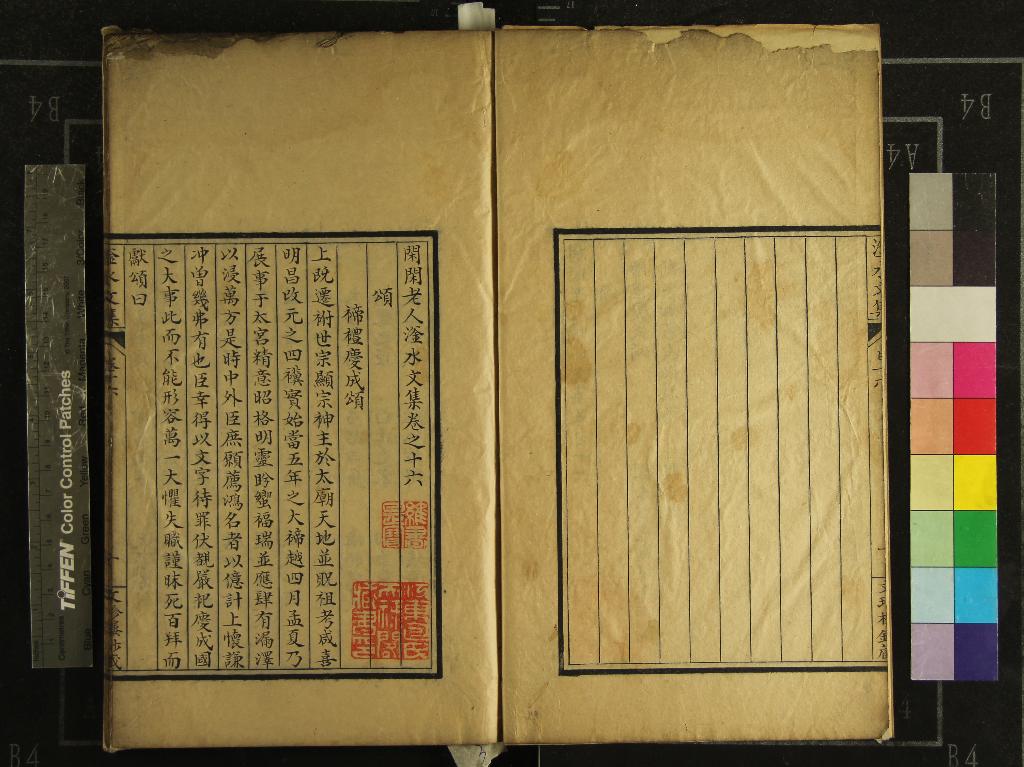 閑閑老人滏水文集卷之十六
頌
禘禮慶成頌
上既遷祔世宗顯宗神主於太廟天地並貺祖考咸喜
明昌改元之四禩實始當五年之大禘越四月孟夏乃
展事于太宮精意昭格明靈肸蠁福瑞並應肆有漏澤
以浸萬方是時中外臣庶願薦鴻名者以億計上懷謙
冲曾幾弗有也臣幸得以文字待罪伏覩嚴祀慶成國
之大事此而不能形容萬一大懼失職謹昧死百拜而
獻頌曰
滏水文集
TIFFEN Color Control Patches
B4
B4
A4
B4
B4